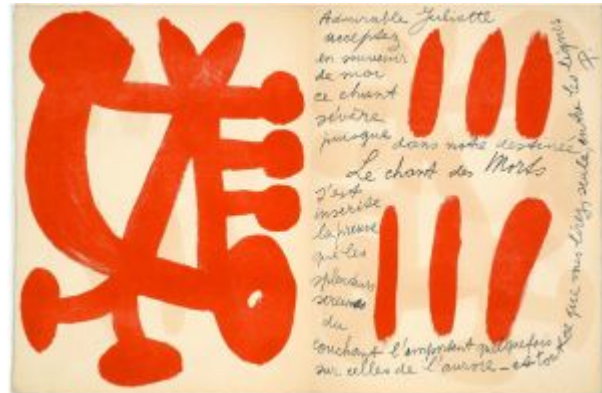 Admirable Juliette
acceptez
en souvenir
de moi
ce chant
sévère
puisque dans notre destinée
Le chant des Morts
s'est
inscrite
la preuve
que les
splendeurs
sereines
du
couchant l'emportent quelquefois
sur celles de l'aurore - et tout
ce que vous lirez, seule, entre les lignes
P.